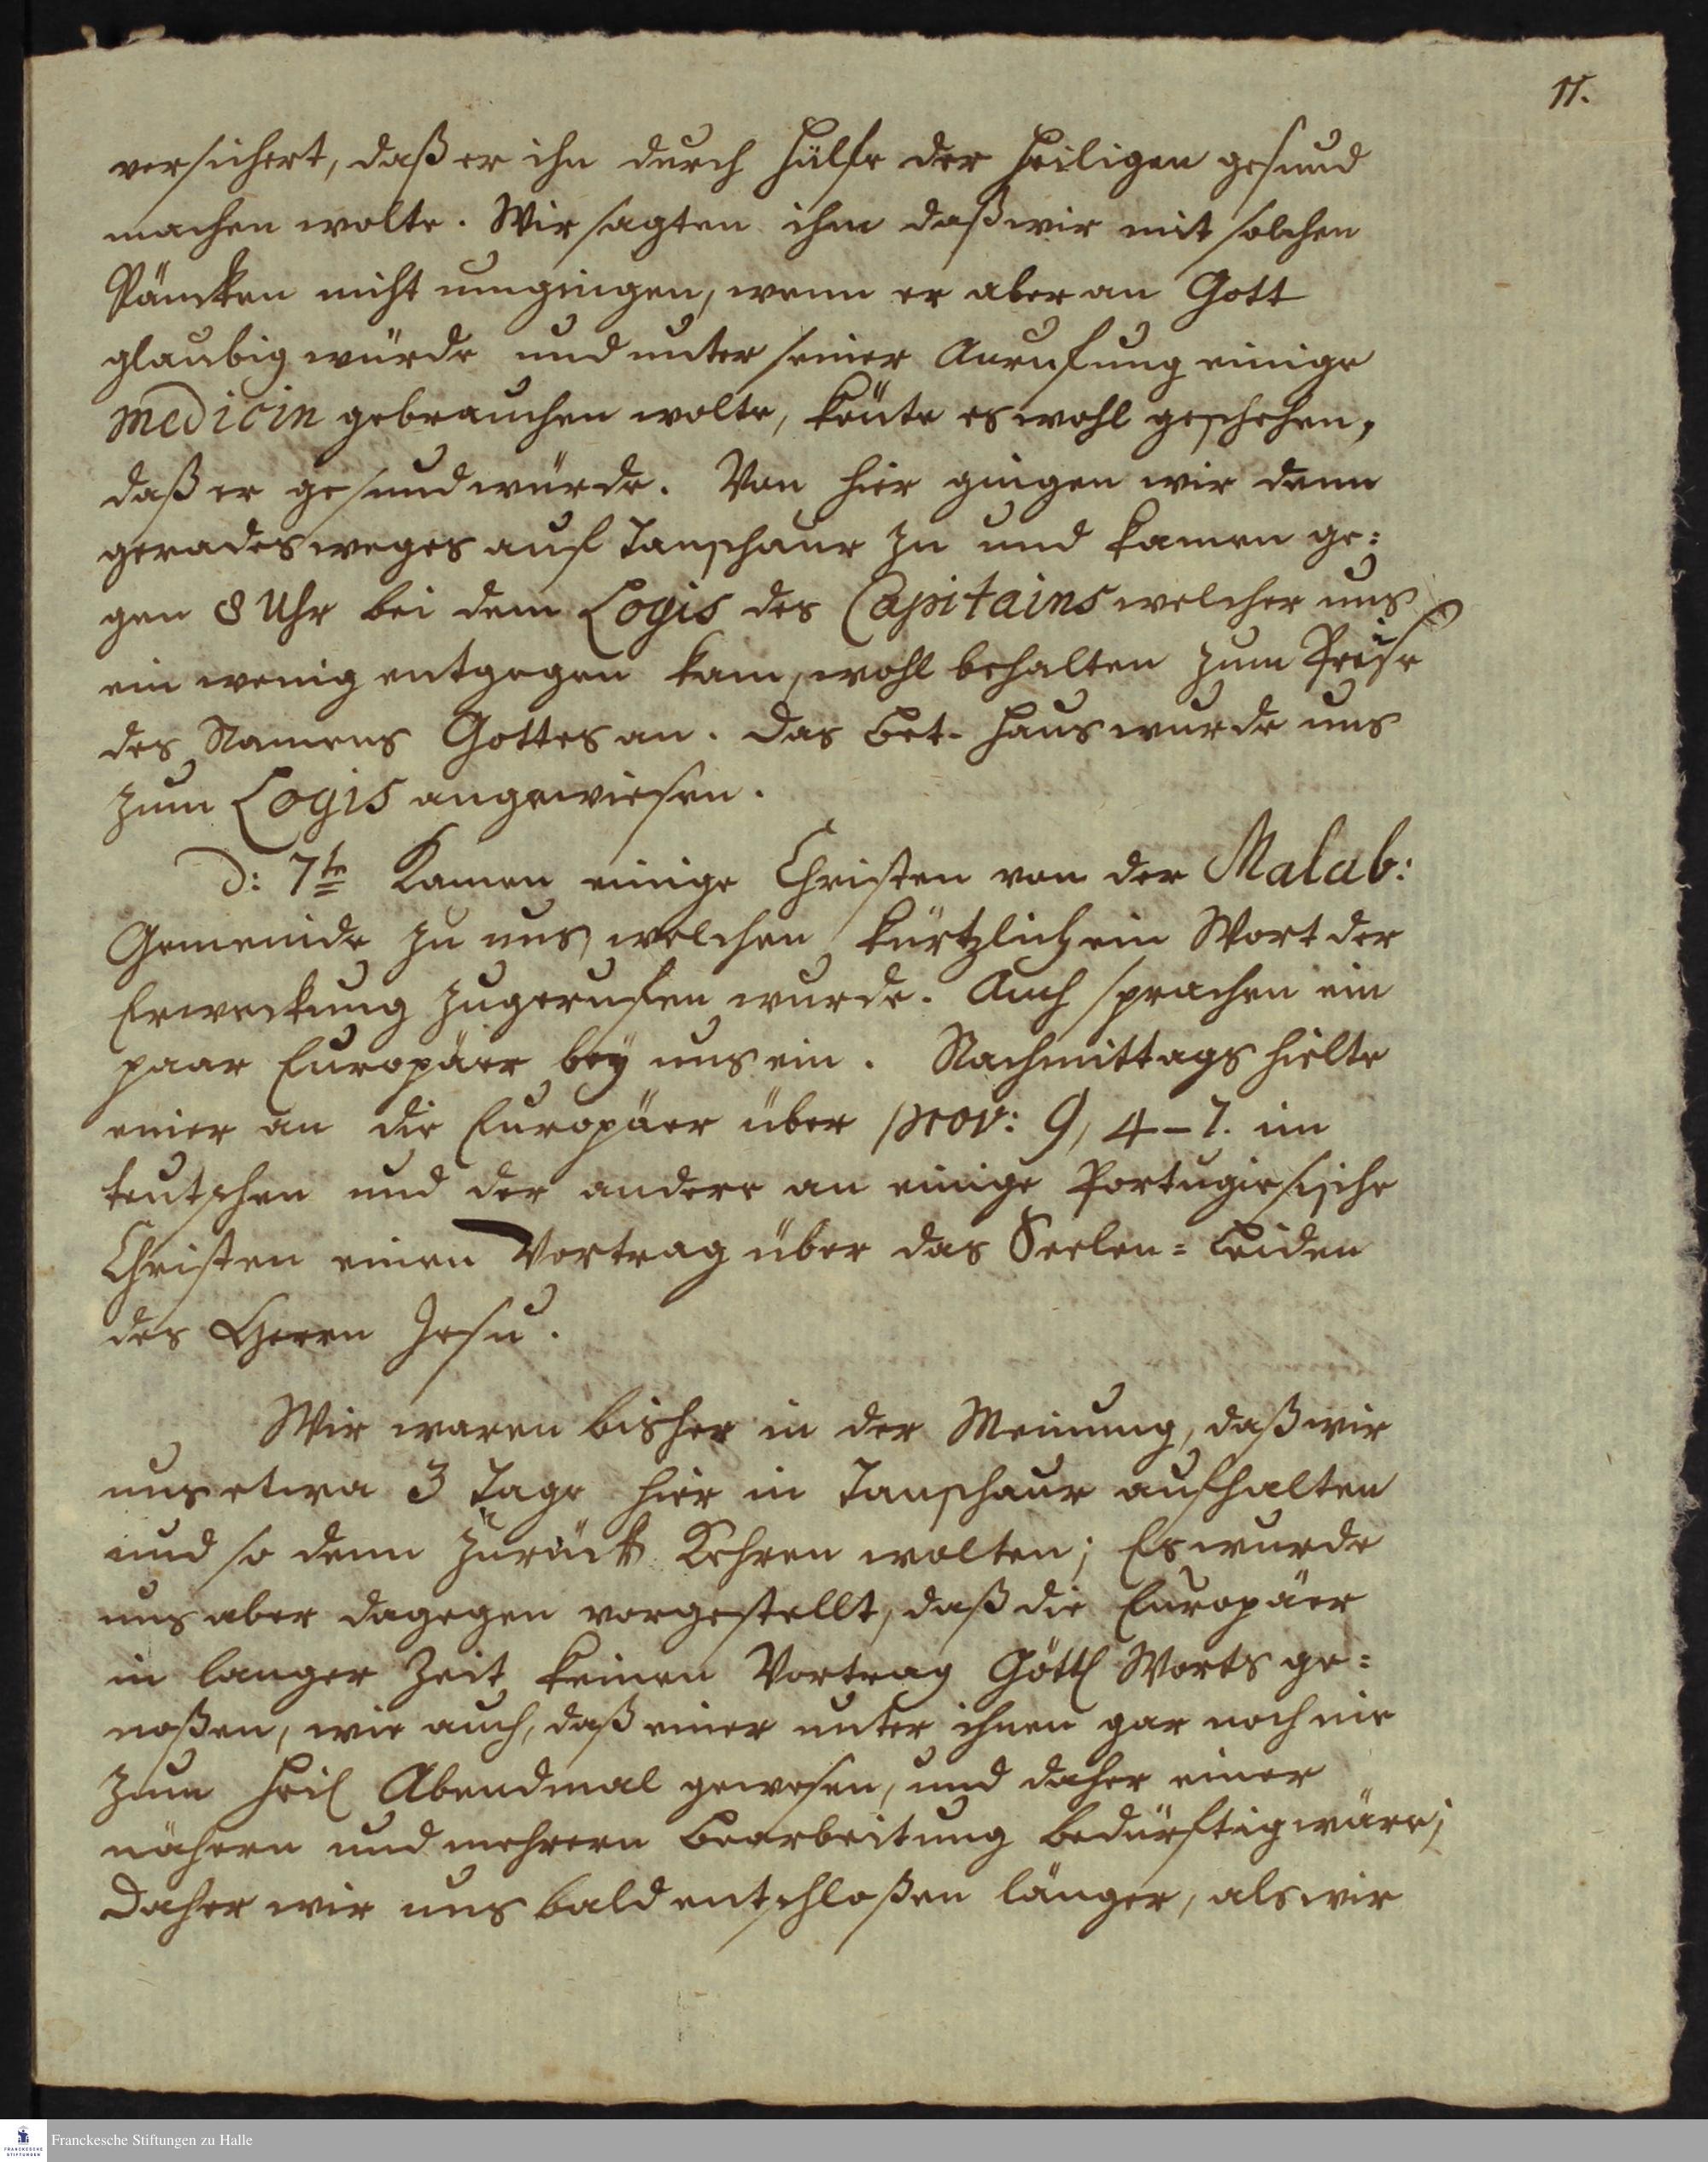 11.
versichert, daß er ihn durch Hülfe der Heiligen gesund
machen wolte. Wir sagten ihm daß wir mit solchen
Räncken nicht umgingen, wenn er aber an Gott
glaubig würde und unter seiner Anrufung einige
medicin gebrauchen wolte, könte es wohl geschehen,
daß er gesund würde. Von hier gingen wir denn
gerades weges auf Tanschaur zu und kamen ge:
gen 8 Uhr bei dem Logis des Capitains welcher uns
ein wenig entgegen kam, wohl behalten zum Preise
des Namens Gottes an. Das Bet-Haus wurde uns
zum Logis angewiesen.
D: 7te Kamen einige Christen von der Malab:
Gemeinde zu uns, welchen kürtzlich ein Wort der
Erweckung zugerufen wurde. Auch sprachen ein
paar Europäer beÿ uns ein. Nachmittags hielte
einer an die Europäer über prov: 9, 4-7. im
teutschen und der andere an einige Portugiesische
Christen einen Vortrag über das Seelen=Leiden
des HErrn Jesu.
Wir waren bisher in der Meinung, daß wir
uns etwa 3 Tage hier in Tanschaur aufhalten
und so denn zurück Kehren wolten; Es wurde
uns aber dagegen vorgestellt, daß die Europäer
in langer Zeit keinen Vortrag Göttl Worts ge:
noßen, wie auch, daß einer unter ihnen gar noch nie
zum Heil Abendmal gewesen, und daher einer
nähern und mehrern Bearbeitung bedürftig wäre;
Daher wir uns bald entschloßen länger, als wir
Franckesche Stiftungen zu Halle
FRANCKESCHE
STIFTUNGEN